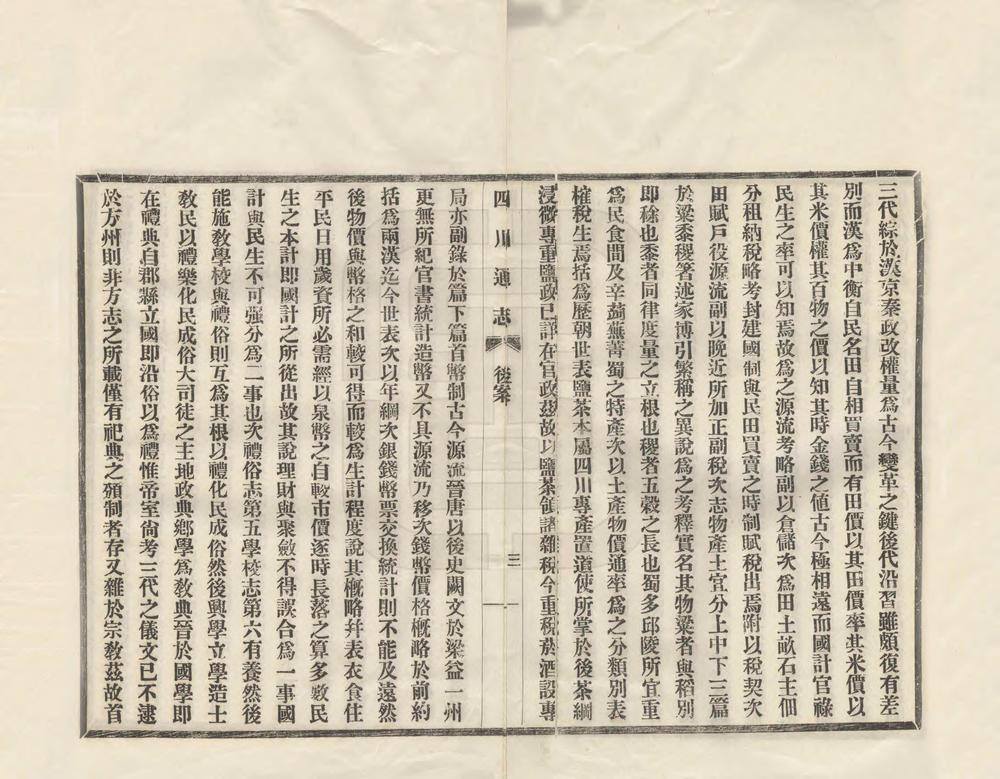 三代綜於漢京秦政改權量爲古今變革之鍵後代沿習雖頗復有差
別而漢爲中衡自民名田自相買賣而有田價以其田價率其米價以
其米價權其百物之價以知其時金錢之値古今極相遠而國計官祿
民生之率可以知焉故爲之源流考略副以倉儲次爲田土畝石主佃
分租納稅略考封建國制與民田買賣之時制賦稅出焉附以稅契次
田賦戶役源流副以晚近所加正副稅次志物產土宜分上中下三篇
於粱黍稷箸述家博引繁稱之異說爲之考釋實名其物粱者與稻別
即稌也黍者同律度量之立根也稷者五穀之長也蜀多邱陵所宜重
爲民食間及辛蒟蕪菁蜀之特產次以土產物價通率爲之分類別表
榷稅生焉括爲歷朝世表鹽茶本屬四川專產置道使所掌於後茶綱
浸微專重鹽政已詳在官政茲故以鹽茶領諸雜稅今重稅於酒設專
四川通志 後案 三
局亦副錄於篇下篇首幣制古今源流晉唐以後史闕文於梁益一州
更無所紀官書統計造幣又不具源流乃移次錢幣價格概略於前約
括爲兩漢迄今世表次以年綱次銀錢幣票交換統計則不能及遠然
後物價與幣格之和較可得而較爲生計程度說其概略幷表衣食住
平民日用歲資所必需經以泉幣之自較市價逐時長落之算多數民
生之本計即國計之所從出故其說理財與聚斂不得誤合爲一事國
計與民生不可强分爲二事也次禮俗志第五學校志第六有養然後
能施教學校與禮俗則互爲其根以禮化民成俗然後興學立學造士
教民以禮樂化民成俗大司徒之主地政典鄉學爲教典晉於國學即
在禮典自郡縣立國即沿俗以爲禮惟帝室尙考三代之儀文已不逮
於方州則非方志之所載僅有祀典之頒制者存又雜於宗教茲故首